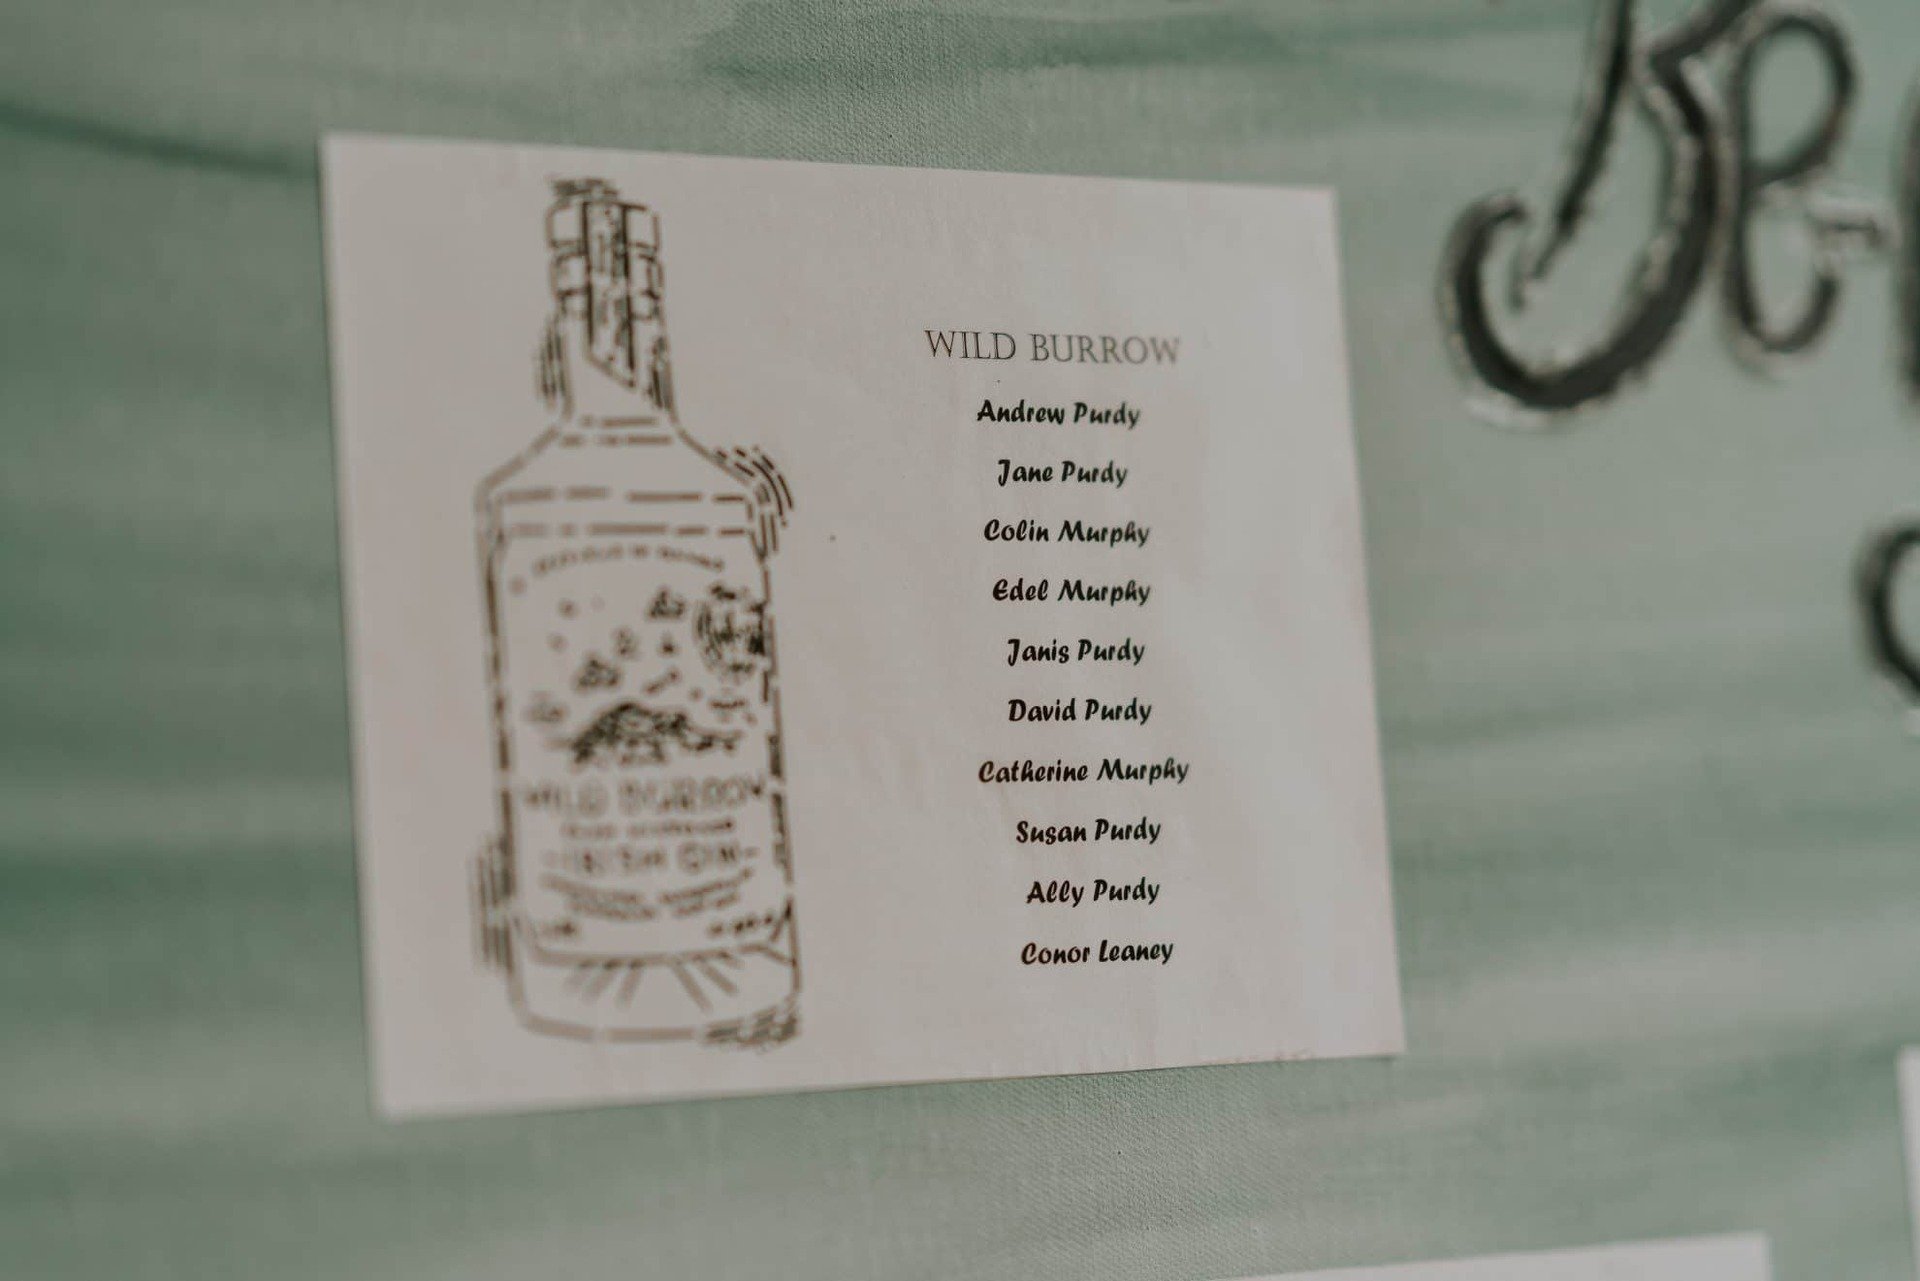 WILD BURROW
Andrew Purdy
Jane Purdy
Colin Murphy
Edel Murphy
Janis Purdy
David Purdy
Catherine Murphy
Susan Purdy
Ally Purdy
Conor Leaney
WILD BURROW
IRISH GIN